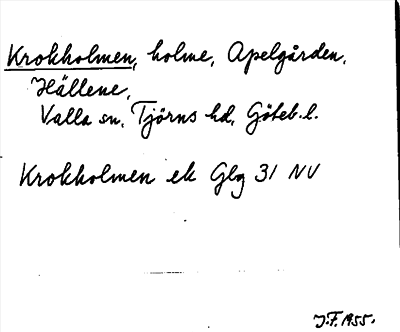 Krokholmen, holme, Apelgården,
Hällene,
Valla sn, Tjörns hd, Göteb. l.
Krokholmen ek Glg 31 NV
J.F. 1955.